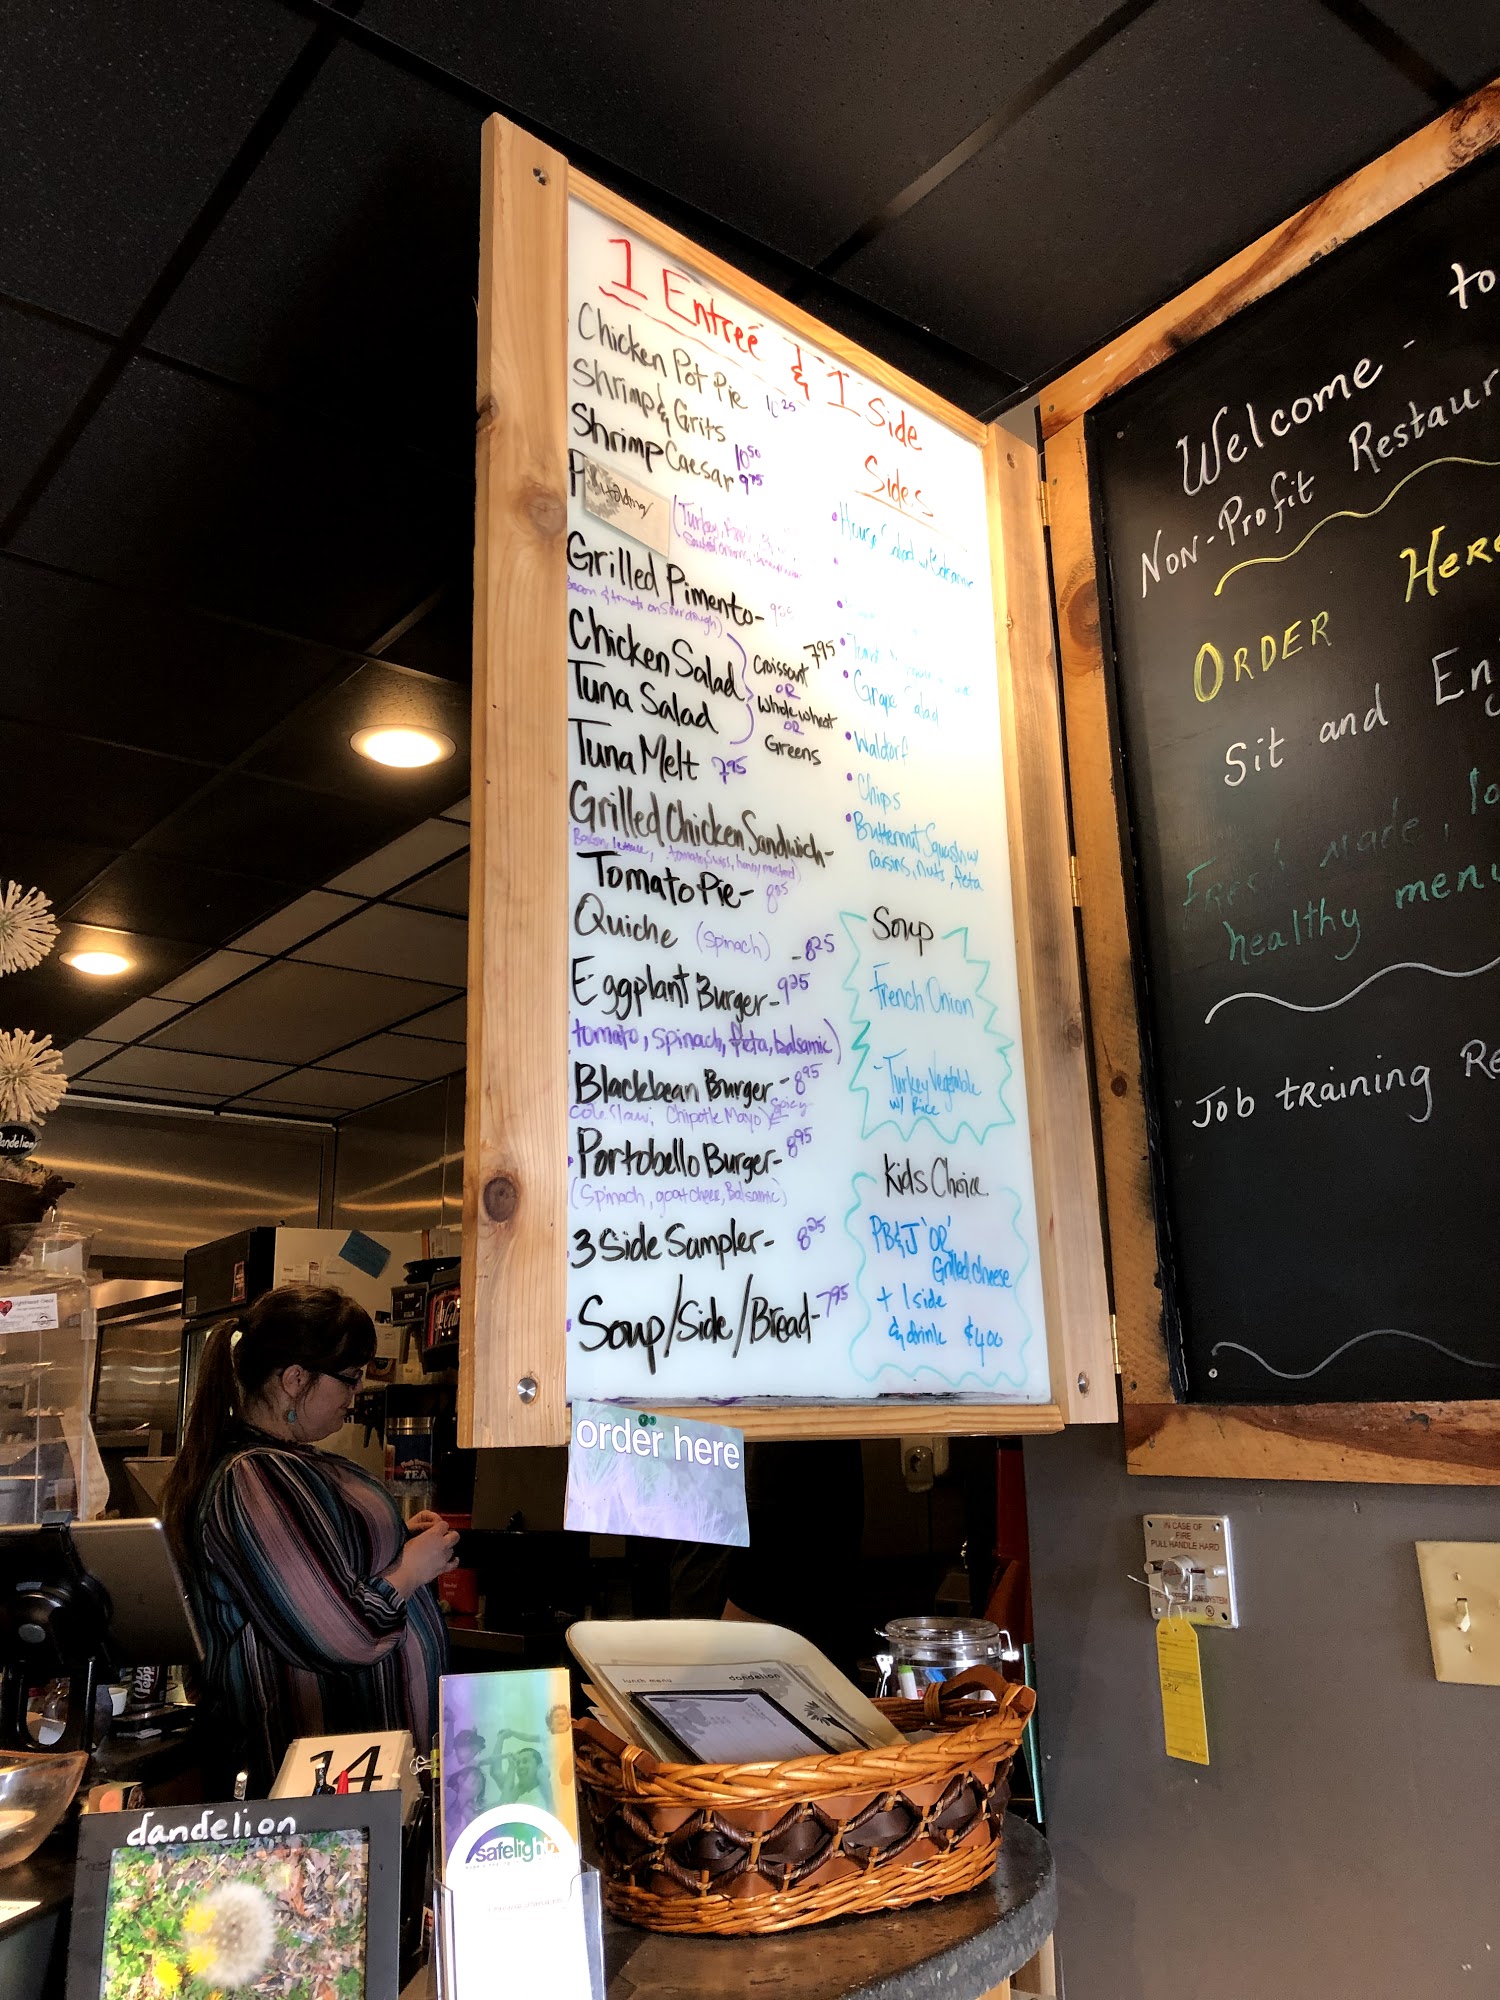 1 Entreé & 1 Side
Chicken Pot Pie
Shrimp & Grits 10 50
Shrimp Caesar 9 75
(Turkey,
Grilled Pimento-
Bacon & tomato on Sourdough)
Chicken Salad
Tuna Salad
Croissant 7 95
OR
Whole wheat
OR
Greens
Tuna Melt 7 95
Grilled Chicken Sandwich-
Bacon, lettuce, tomato, Swiss, honey mustard)
Tomato Pie-
Quiche (Spinach) - 8 25
Eggplant Burger- 9 25
tomato, spinach, feta, balsamic)
Blackbean Burger - 8 95
Cole slaw, Chipotle Mayo) Spicy
Portobello Burger- 8 95
(Spinach, goat cheese, Balsamic)
3 Side Sampler- 8 25
Soup/Side/Bread- 7 95
Sides
House Salad w/ Balsamic
Grape Salad
Waldorf
Chips
Butternut Squash w/
raisins, nuts, feta
Soup
French Onion
- Turkey Vegetable
w/ Rice
Kids Choice
PB&J 'OR'
Grilled cheese
+ 1 side
& drink $4.00
order here
Welcome - to
Non-Profit Restaur
ORDER HERE
Sit and En
Fresh made, lo
healthy menu
Job training Re
IN CASE OF
FIRE
PULL HANDLE HARD
lunch menu dandelion
14
dandelion
safelight
dandelion
TEA